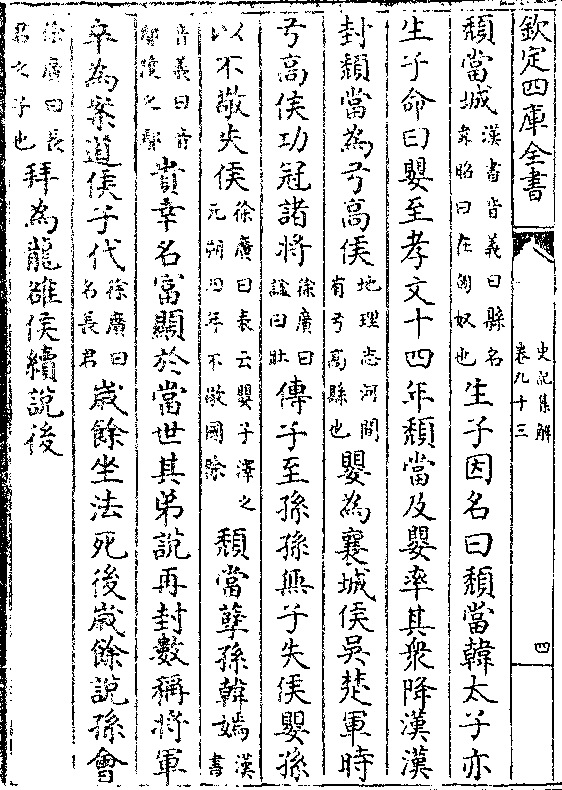 欽定四庫全書
史記集解
卷九十三
四
頽當城漢書音義曰縣名韋昭曰在匈奴也生子因名曰頽當韓太子亦
生子命曰嬰至孝文十四年頽當及嬰率其衆降漢漢
封頽當為弓高侯地理志河間有弓高縣也嬰為襄城侯吳楚軍時
弓高侯功冠諸將徐廣曰諡曰壯傳子至孫孫無子失侯嬰孫
以不敬失侯徐廣曰表云嬰子澤之元朔四年不敬國除頽當孽孫韓嫣漢書
音義曰音鄢陵之鄢貴幸名富顯於當世其弟說再封數稱將軍
卒為案道侯子代徐廣曰名長君歳餘坐法死後歳餘說孫曾
徐廣曰長君之子也拜為龍雒侯續說後